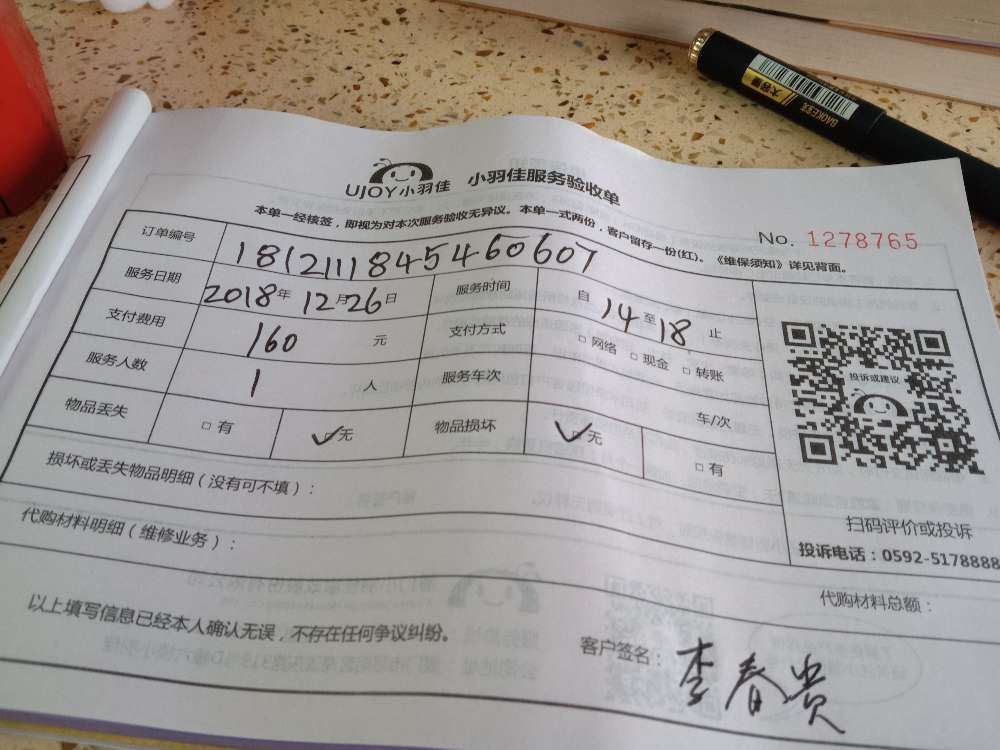 UJOY小羽佳 小羽佳服务验收单
本单一经核签，即视为对本次服务验收无异议。本单一式两份，客户留存一份(红)。《维保须知》详见背面。
No. 1278765
订单编号 18121118454606​07
服务日期 2018年 12月26日 服务时间 自 14 至 18 止
支付费用 160 元 支付方式 □ 网络 □ 现金 □ 转账
服务人数 1 人 服务车次 车/次
物品丢失 □ 有 ✓ 无 物品损坏 ✓ 无 □ 有
投诉或建议
扫码评价或投诉
投诉电话：0592-5178888
损坏或丢失物品明细（没有可不填）：
代购材料明细（维修业务）：
代购材料总额：
以上填写信息已经本人确认无误，不存在任何争议纠纷。
客户签名：李春贵
大容量
BAOKE宝克